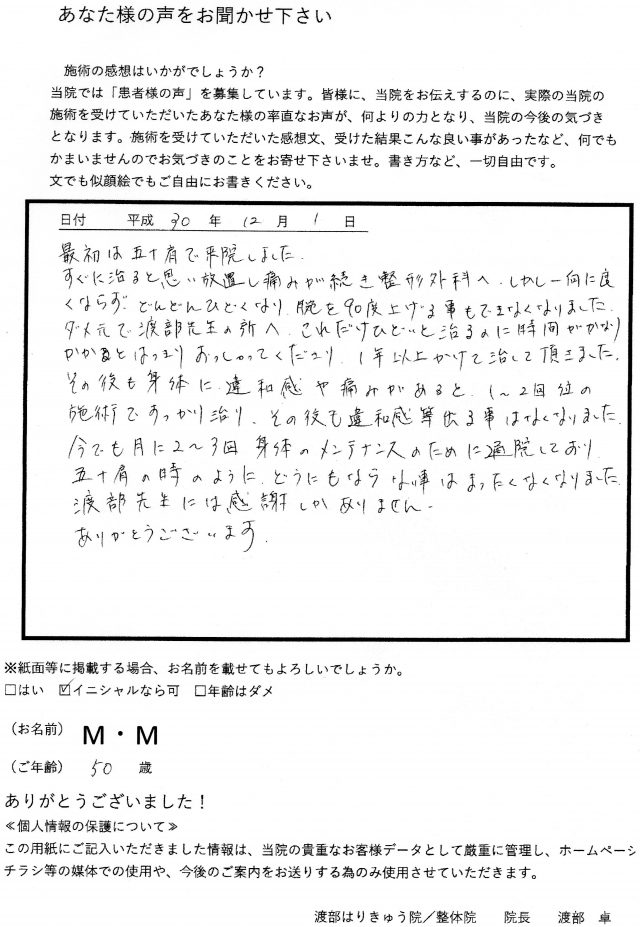 あなた様の声をお聞かせ下さい
施術の感想はいかがでしょうか？
当院では「患者様の声」を募集しています。皆様に、当院をお伝えするのに、実際の当院の
施術を受けていただいたあなた様の率直なお声が、何よりの力となり、当院の今後の気づき
となります。施術を受けていただいた感想文、受けた結果こんな良い事があったなど、何でも
かまいませんのでお気づきのことをお寄せ下さいませ。書き方など、一切自由です。
文でも似顔絵でもご自由にお書きください。
日付 平成 30 年 12 月 1 日
最初は五十肩で来院しました。
すぐに治ると思い放置し痛みが続き整形外科へ。しかし一向に良
くならず、どんどんひどくなり、腕を90度上げる事もできなくなりました。
ダメ元で渡部先生の所へ。これだけひどいと治るのに時間がかなり
かかるとはっきりおっしゃってくださり、1年以上かけて治して頂きました。
その後も身体に、違和感や痛みがあると、1〜2回位の
施術ですっかり治り、その後も違和感等出る事はなくなりました。
今でも月に2〜3回身体のメンテナンスのために通院しており
五十肩の時のように、どうにもならない事はまったくなくなりました。
渡部先生には感謝しかありません。
ありがとうございます。
※紙面等に掲載する場合、お名前を載せてもよろしいでしょうか。
□はい ☑イニシャルなら可 □年齢はダメ
（お名前） M・M
（ご年齢） 50 歳
ありがとうございました！
≪個人情報の保護について≫
この用紙にご記入いただきました情報は、当院の貴重なお客様データとして厳重に管理し、ホームページ
チラシ等の媒体での使用や、今後のご案内をお送りする為のみ使用させていただきます。
渡部はりきゅう院／整体院 院長 渡部 卓